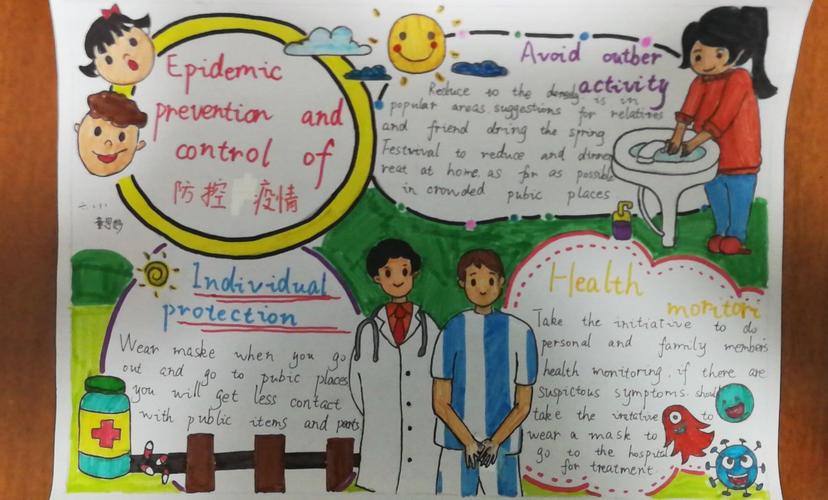 Epidemic
prevention and
control of
防控 疫情
二小
Avoid outber
activity
Reduce to the is in
popular areas. suggestions for relatives
and friend dring the spring
Festvival to reduce and dinner
reat at home. as far as possible
in crowded pubic places
Individual
protection
Wear maske when you go
out and go to pubic places
you will get less contact
with public items and parts
Health
moritori
Take the initiative to do
personal and family members
health monitoring. if there are
suspictous symptoms. should
take the initative to
wear a mask to
go to the hospital
for treatment